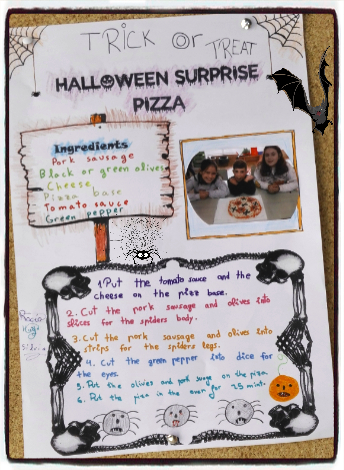 TRICK or TREAT
HALLOWEEN SURPRISE
PIZZA
Ingredients
Pork sausage
Black or green olives
Cheese
Pizza base
Tomato sauce
Green pepper
1. Put the tomato sauce and the
cheese on the pizz base.
2. Cut the pork sausage and olives into
slices for the spiders body.
3. Cut the pork sausage and olives into
strips for the spiders legs.
4. Cut the green pepper into dice for
the eyes.
5. Put the olives and pork on the pizza.
6. Put the pizza in the oven for 25 mints.